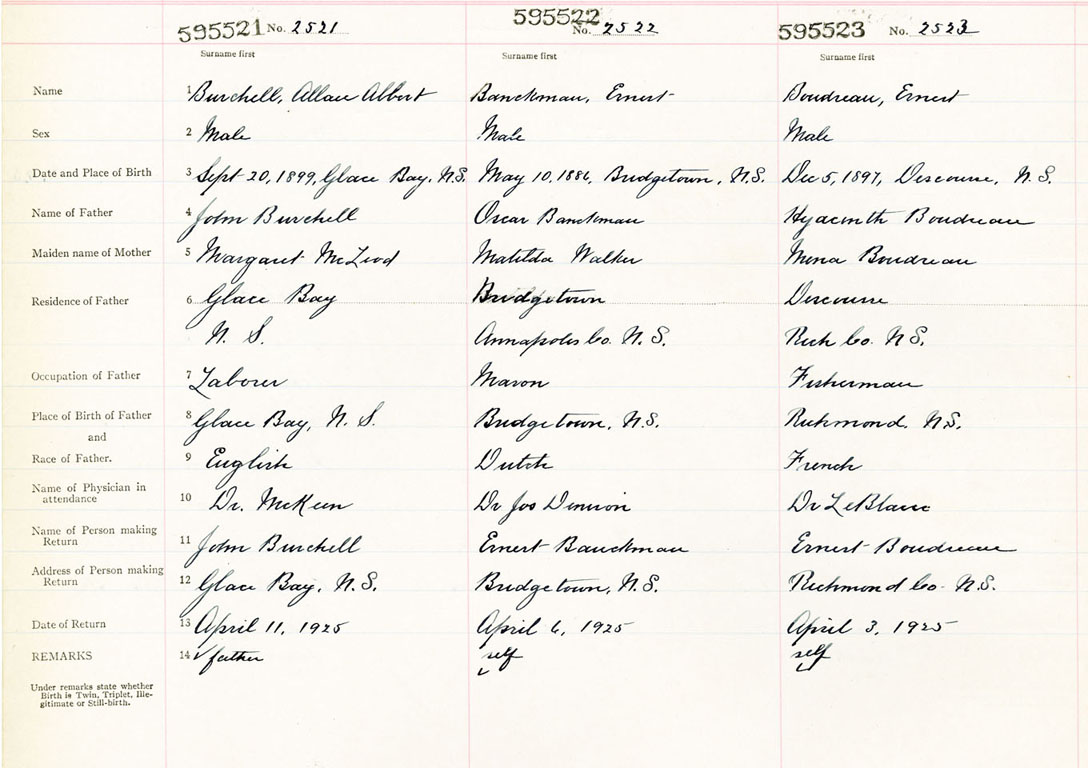 595521 No. 2521 595522 No. 2522 595523 No. 2523
Surname first Surname first Surname first
Name 1 Burchell, Allan Albert Banckman, Ernest Boudreau, Ernest
Sex 2 Male Male Male
Date and Place of Birth 3 Sept 20, 1899, Glace Bay, N.S. May 10, 1886, Bridgetown, N.S. Dec 5, 1897, Descouse, N.S.
Name of Father 4 John Burchell Oscar Banckman Hyacinth Boudreau
Maiden name of Mother 5 Margaret McLeod Matilda Walker Mena Boudreau
Residence of Father 6 Glace Bay Bridgetown Descouse
N. S. Annapolis Co. N.S. Rich Co. N.S.
Occupation of Father 7 Laborer Mason Fisherman
Place of Birth of Father 8 Glace Bay, N. S. Bridgetown, N.S. Richmond, N.S.
and
Race of Father. 9 English Dutch French
Name of Physician in attendance 10 Dr. McKeen Dr Jos Dennison Dr LeBlanc
Name of Person making Return 11 John Burchell Ernest Banckman Ernest Boudreau
Address of Person making Return 12 Glace Bay, N.S. Bridgetown, N.S. Richmond Co. N.S.
Date of Return 13 April 11, 1925 April 6, 1925 April 3, 1925
REMARKS 14 father self self
Under remarks state whether
Birth is Twin, Triplet, Ille-
gitimate or Still-birth.